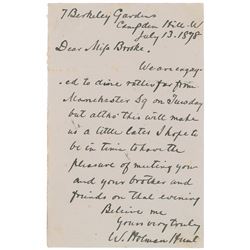 7 Berkeley Gardens
Campden Hill. W.
July 13. 1898
Dear Miss Brooke.
We are engag-
ed to dine rather far from
Manchester Sq on Tuesday
but altho' this will make
us a little late I hope to
be in time to have the
pleasure of meeting you
and your brother and
friends on that evening
Believe me
Yours very truly
W. Holman Hunt